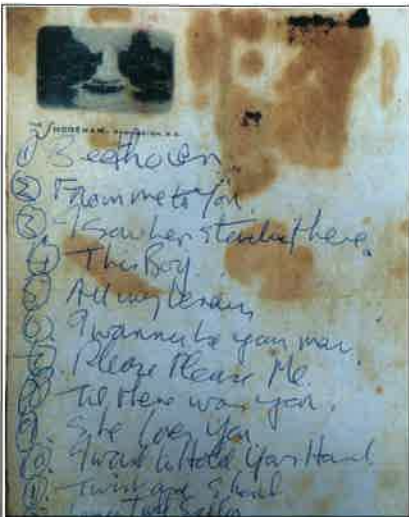 THE SHOREHAM, WASHINGTON, D.C.
① Beethoven
② From me to You.
③ I Saw her standing there.
④ This Boy.
⑤ All my Loving
⑥ I wanna be your man.
⑦ Please Please Me.
⑧ Till there was you.
⑨ She loves You
⑩ I want to Hold Your Hand
⑪ Twist and Shout
Long Tall Sally